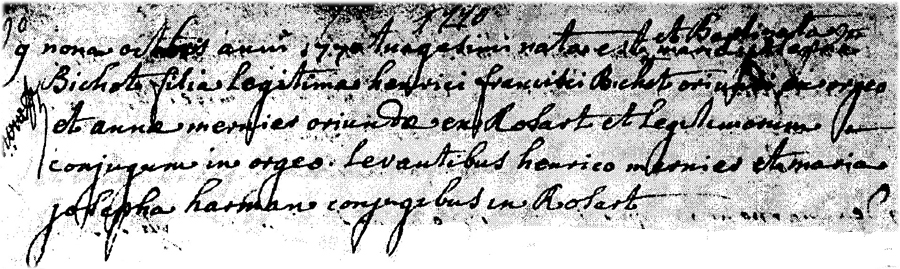 1770
9 nona octobris anni 1770 tuagesimi nata est et Baptizata maria
Bichot filia legitima henrici francisci Bichot oriundi ex orgeo
et annæ mernier oriundæ ex Rosart et legitimorum
conjugum in orgeo. levantibus henrico mernier et maria
josepha harman conjugibus in Rosart